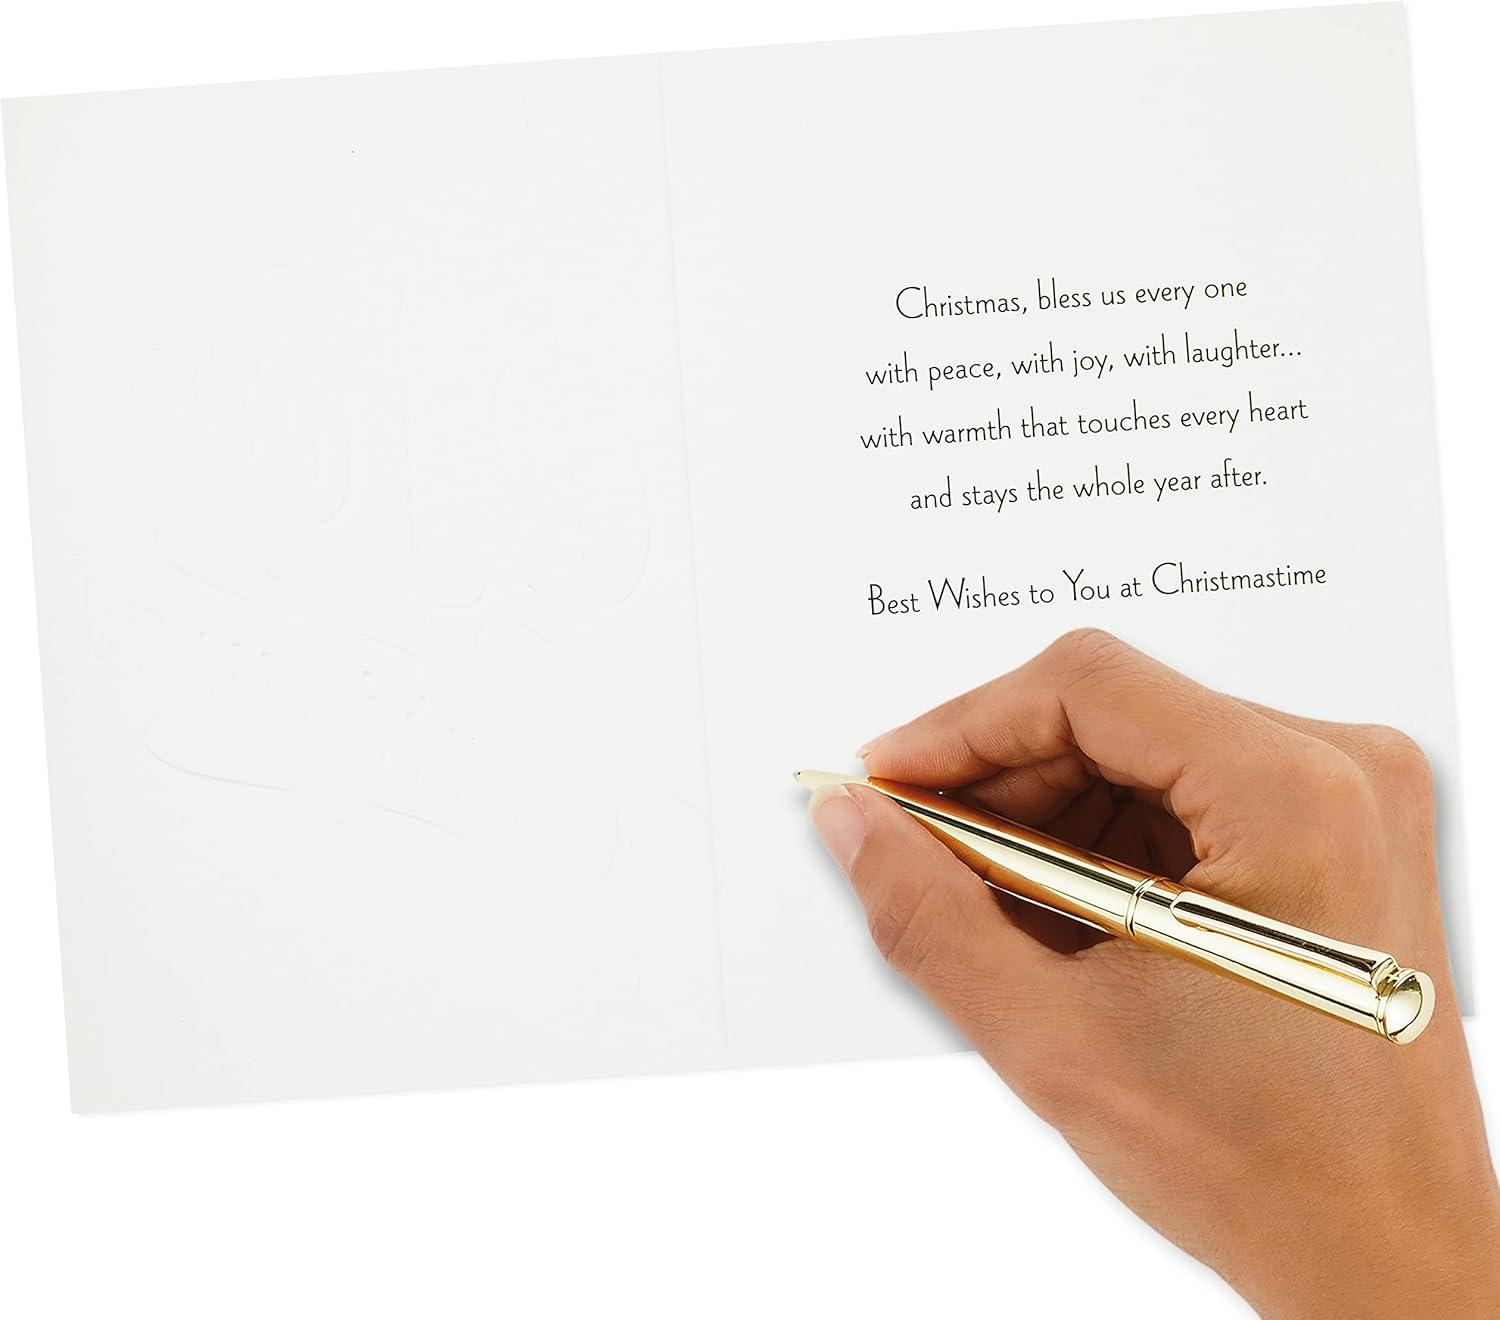 Christmas, bless us every one
with peace, with joy, with laughter...
with warmth that touches every heart
and stays the whole year after.
Best Wishes to You at Christmastime